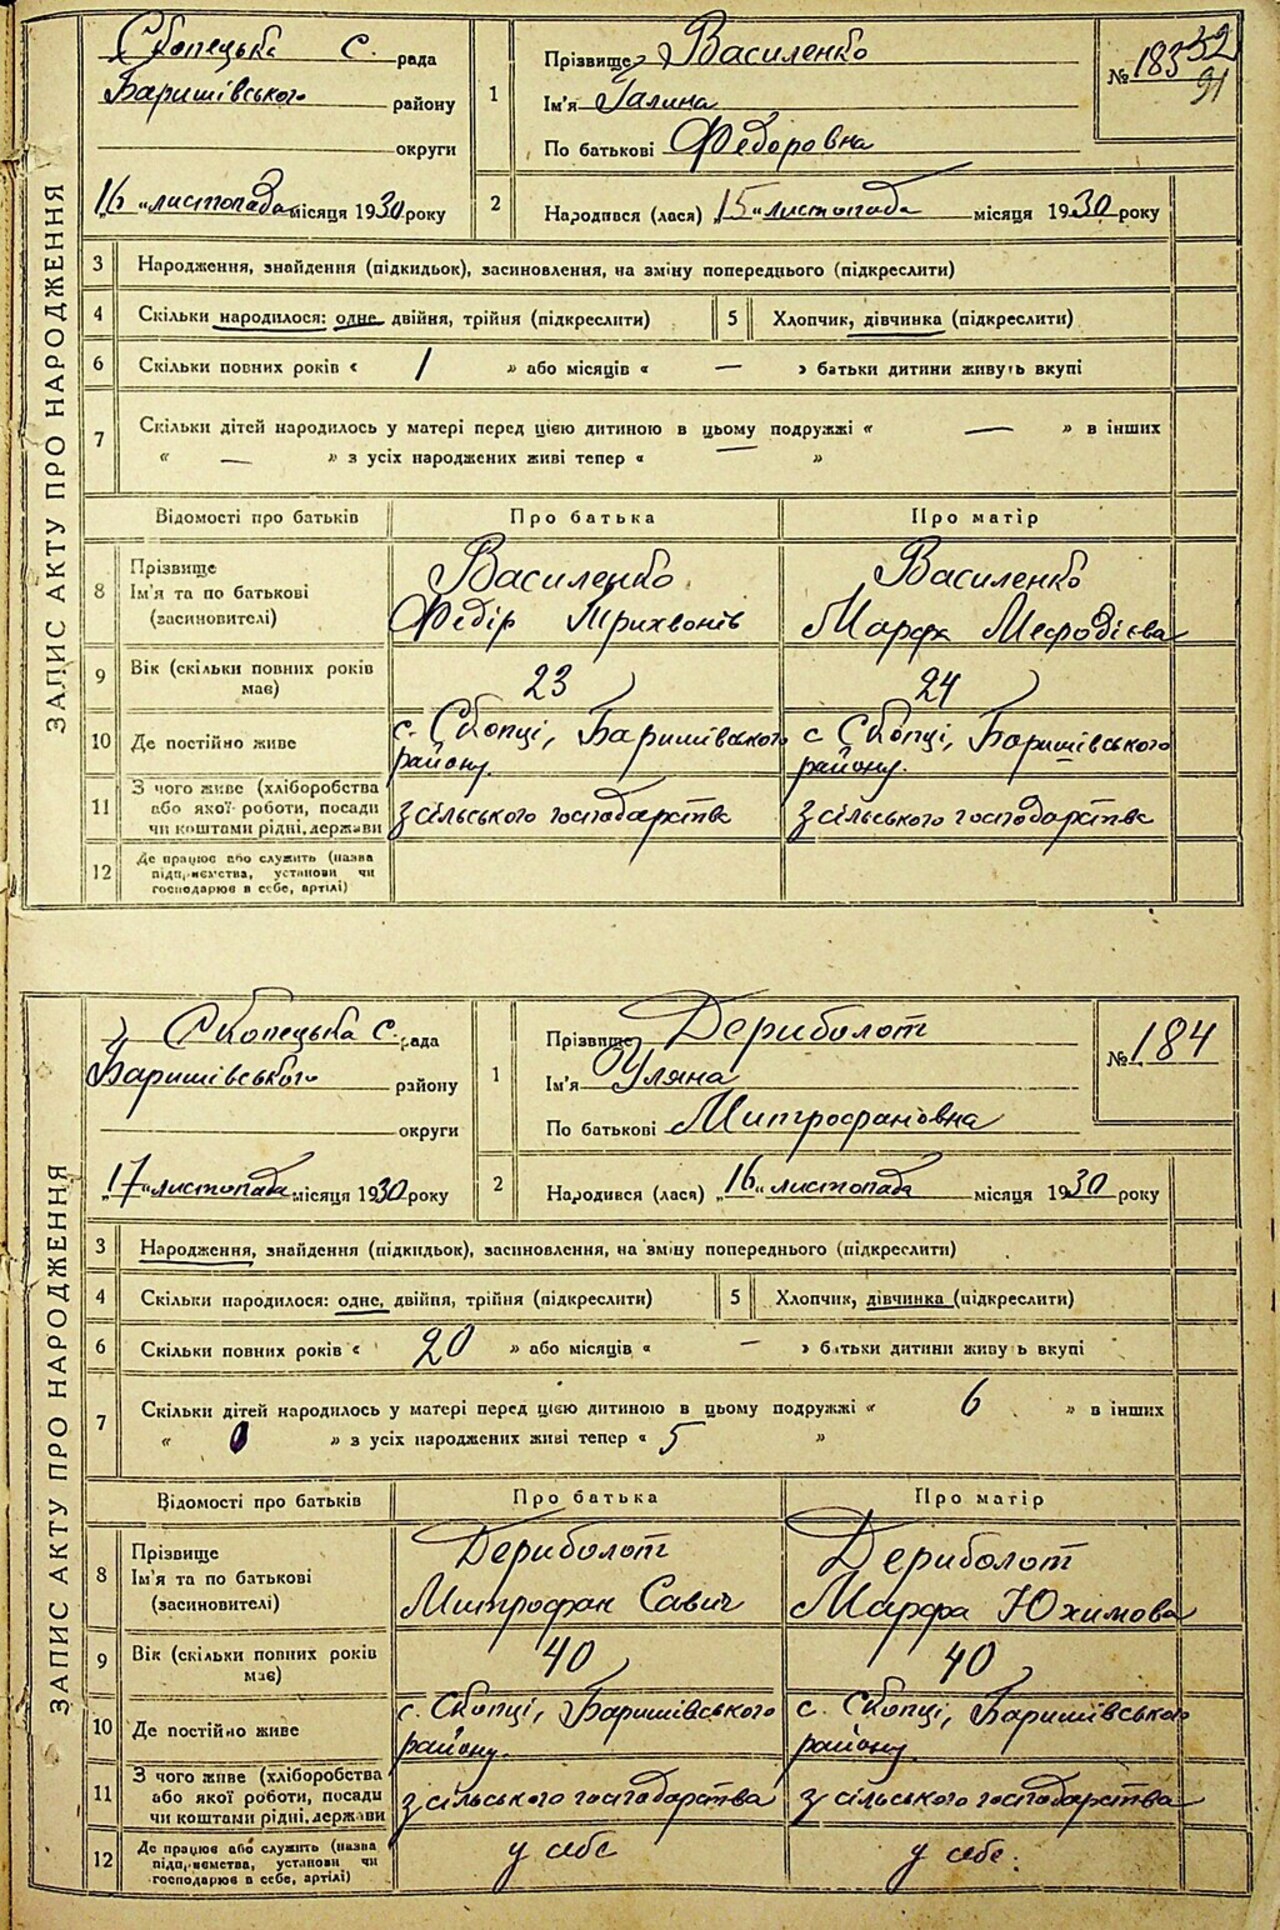 ЗАПИС АКТУ ПРО НАРОДЖЕННЯ
Скопецька с. рада
Баришівського району
округи
„16“ листопада місяця 1930 року
1
Прізвище Василенко
Ім'я Галина
По батькові Федоровна
№ 183
32
91
2 Народився (лася) „15“ листопада місяця 1930 року
3 Народження, знайдення (підкидьок), засиновлення, на зміну попереднього (підкреслити)
4 Скільки народилося: одне, двійня, трійня (підкреслити) 5 Хлопчик, дівчинка (підкреслити)
6 Скільки повних років « 1 » або місяців « — » батьки дитини живуть вкупі
7 Скільки дітей народилось у матері перед цією дитиною в цьому подружжі « — » в інших
« — » з усіх народжених живі тепер « — »
Відомості про батьків Про батька Про матір
8 Прізвище
Ім'я та по батькові
(засиновителі)
Василенко
Федір Трихвонів
Василенко
Марфа Мефодієва
9 Вік (скільки повних років
має)
23 24
10 Де постійно живе
с. Скопці, Баришівського
району.
с Скопці, Баришівського
району.
11 З чого живе (хліборобства
або якої роботи, посади
чи коштами рідні, держави
з сільського господарства з сільського господарства
12 Де працює або служить (назва
підприємства, установи чи
господарює в себе, артілі)
ЗАПИС АКТУ ПРО НАРОДЖЕННЯ
Скопецька с. рада
Баришівського району
округи
„17“ листопада місяця 1930 року
1
Прізвище Дериболот
Ім'я Уляна
По батькові Митрофановна
№ 184
2 Народився (лася) „16“ листопада місяця 1930 року
3 Народження, знайдення (підкидьок), засиновлення, на зміну попереднього (підкреслити)
4 Скільки народилося: одне, двійня, трійня (підкреслити) 5 Хлопчик, дівчинка (підкреслити)
6 Скільки повних років « 20 » або місяців « — » батьки дитини живуть вкупі
7 Скільки дітей народилось у матері перед цією дитиною в цьому подружжі « 6 » в інших
« 0 » з усіх народжених живі тепер « 5 »
Відомості про батьків Про батька Про матір
8 Прізвище
Ім'я та по батькові
(засиновителі)
Дериболот
Митрофан Савич
Дериболот
Марфа Юхимова
9 Вік (скільки повних років
має)
40 40
10 Де постійно живе
с. Скопці, Баришівського
району.
с. Скопці, Баришівського
району.
11 З чого живе (хліборобства
або якої роботи, посади
чи коштами рідні, держави
з сільського господарства з сільського господарства
12 Де працює або служить (назва
підприємства, установи чи
господарює в себе, артілі)
у себе у себе.